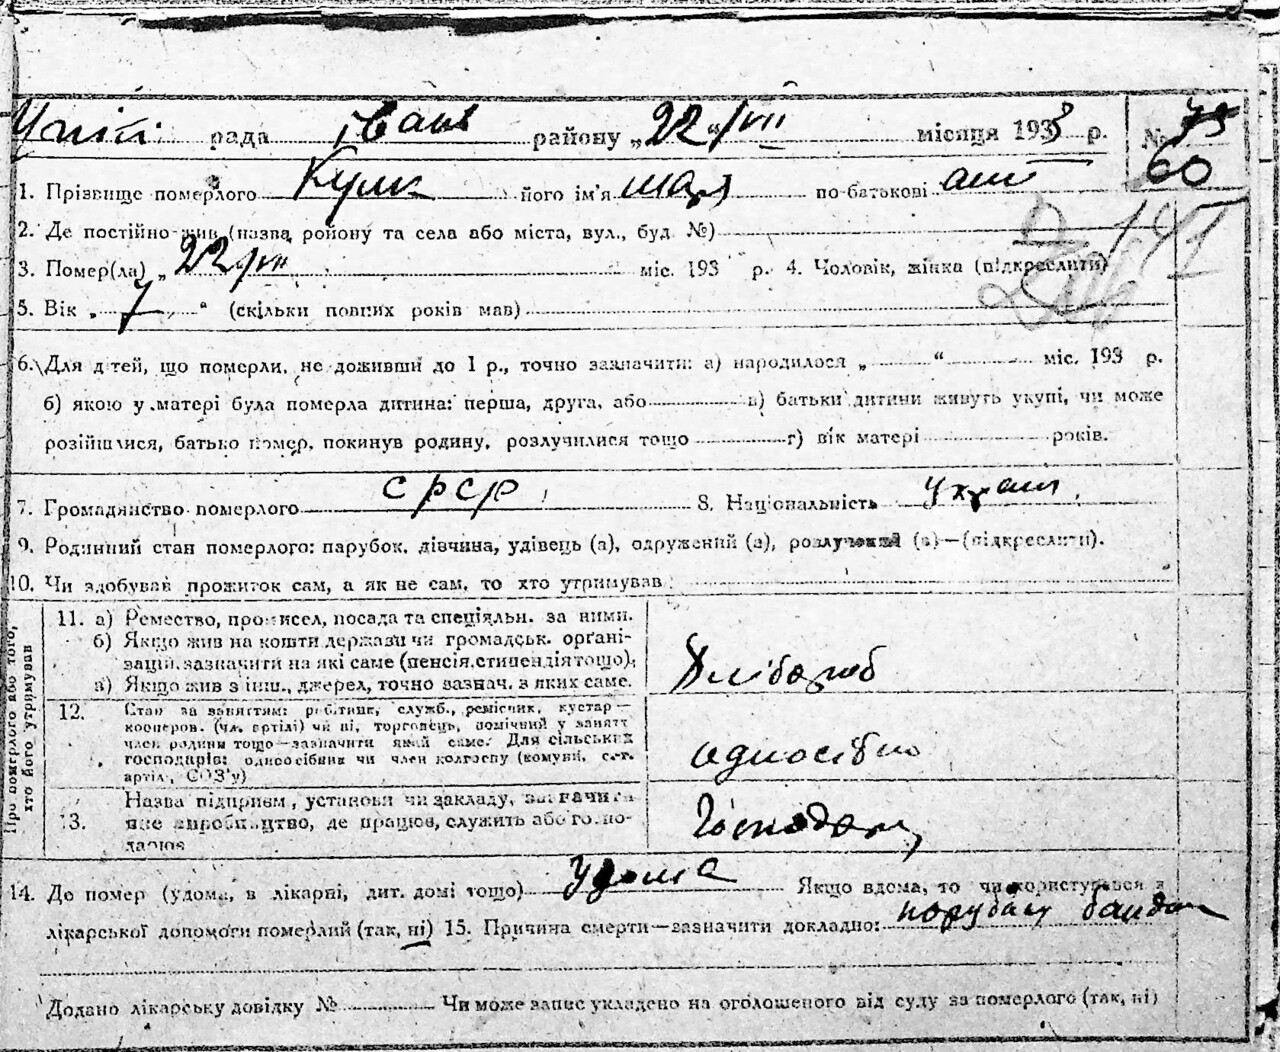 рада району „22“/VII місяця 1933 р. № 75
60
1. Прізвище померлого Кулик його ім'я по-батькові
2. Де постійно жив (назва району та села або міста, вул., буд. №)
3. Помер(ла) „22/VII міс. 193 р. 4. Чоловік, жінка (підкреслити)
5. Вік „7“ (скільки повних років мав)
6. Для дітей, що померли, не доживши до 1 р., точно зазначити: а) народилося „ “ міс. 193 р.
б) якою у матері була померла дитина: перша, друга, або в) батьки дитини живуть укупі, чи може
розійшлися, батько помер, покинув родину, розлучилися тощо г) вік матері років.
7. Громадянство померлого СРСР 8. Національність Украин
9. Родинний стан померлого: парубок, дівчина, удівець (а), одружений (а), розлучений (а)—(підкреслити).
10. Чи здобував прожиток сам, а як не сам, то хто утримував
Про померлого або того, хто його утримував
11. а) Ремество, промисел, посада та спеціяльн. за ними.
б) Якщо жив на кошти держави чи громадськ. органі-
зацій, зазначити на які саме (пенсія, стипендія тощо);
в) Якщо жив з інш., джерел, точно зазнач. з яких саме.
Хлібороб
12. Стан за заняттям: робітник, служб., ремісник, кустар—
кооперов. (чл. артілі) чи ні, торговець, помічний у занятт
член родини тощо—зазначити який саме. Для сільських
господарів: одноосібник чи член колгоспу (комуни, с.-г.
артіл., СОЗ'у)
одноосібно
13. Назва підприєм., установи чи закладу, зазначити
яке виробництво, де працює, служить або госпо-
дарює
14. Де помер (удома, в лікарні, дит. домі тощо) удома Якщо вдома, то чи користувався з
лікарської допомоги померлий (так, ні) 15. Причина смерти—зазначити докладно:
Додано лікарську довідку № Чи може запис укладено на оголошеного від суду за померлого (так, ні)